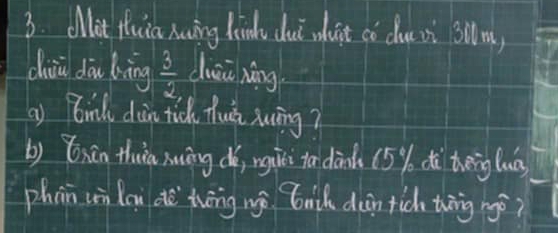 3. Một thửa ruộng hình chữ nhật có chu vi 300m,
chiều dài bằng 3/2 chiều rộng.
a) Tính diện tích thửa ruộng?
b) Trên thửa ruộng đó, người ta dành 65% để trồng lúa,
phần còn lại để trồng ngô. Tính diện tích trồng ngô?